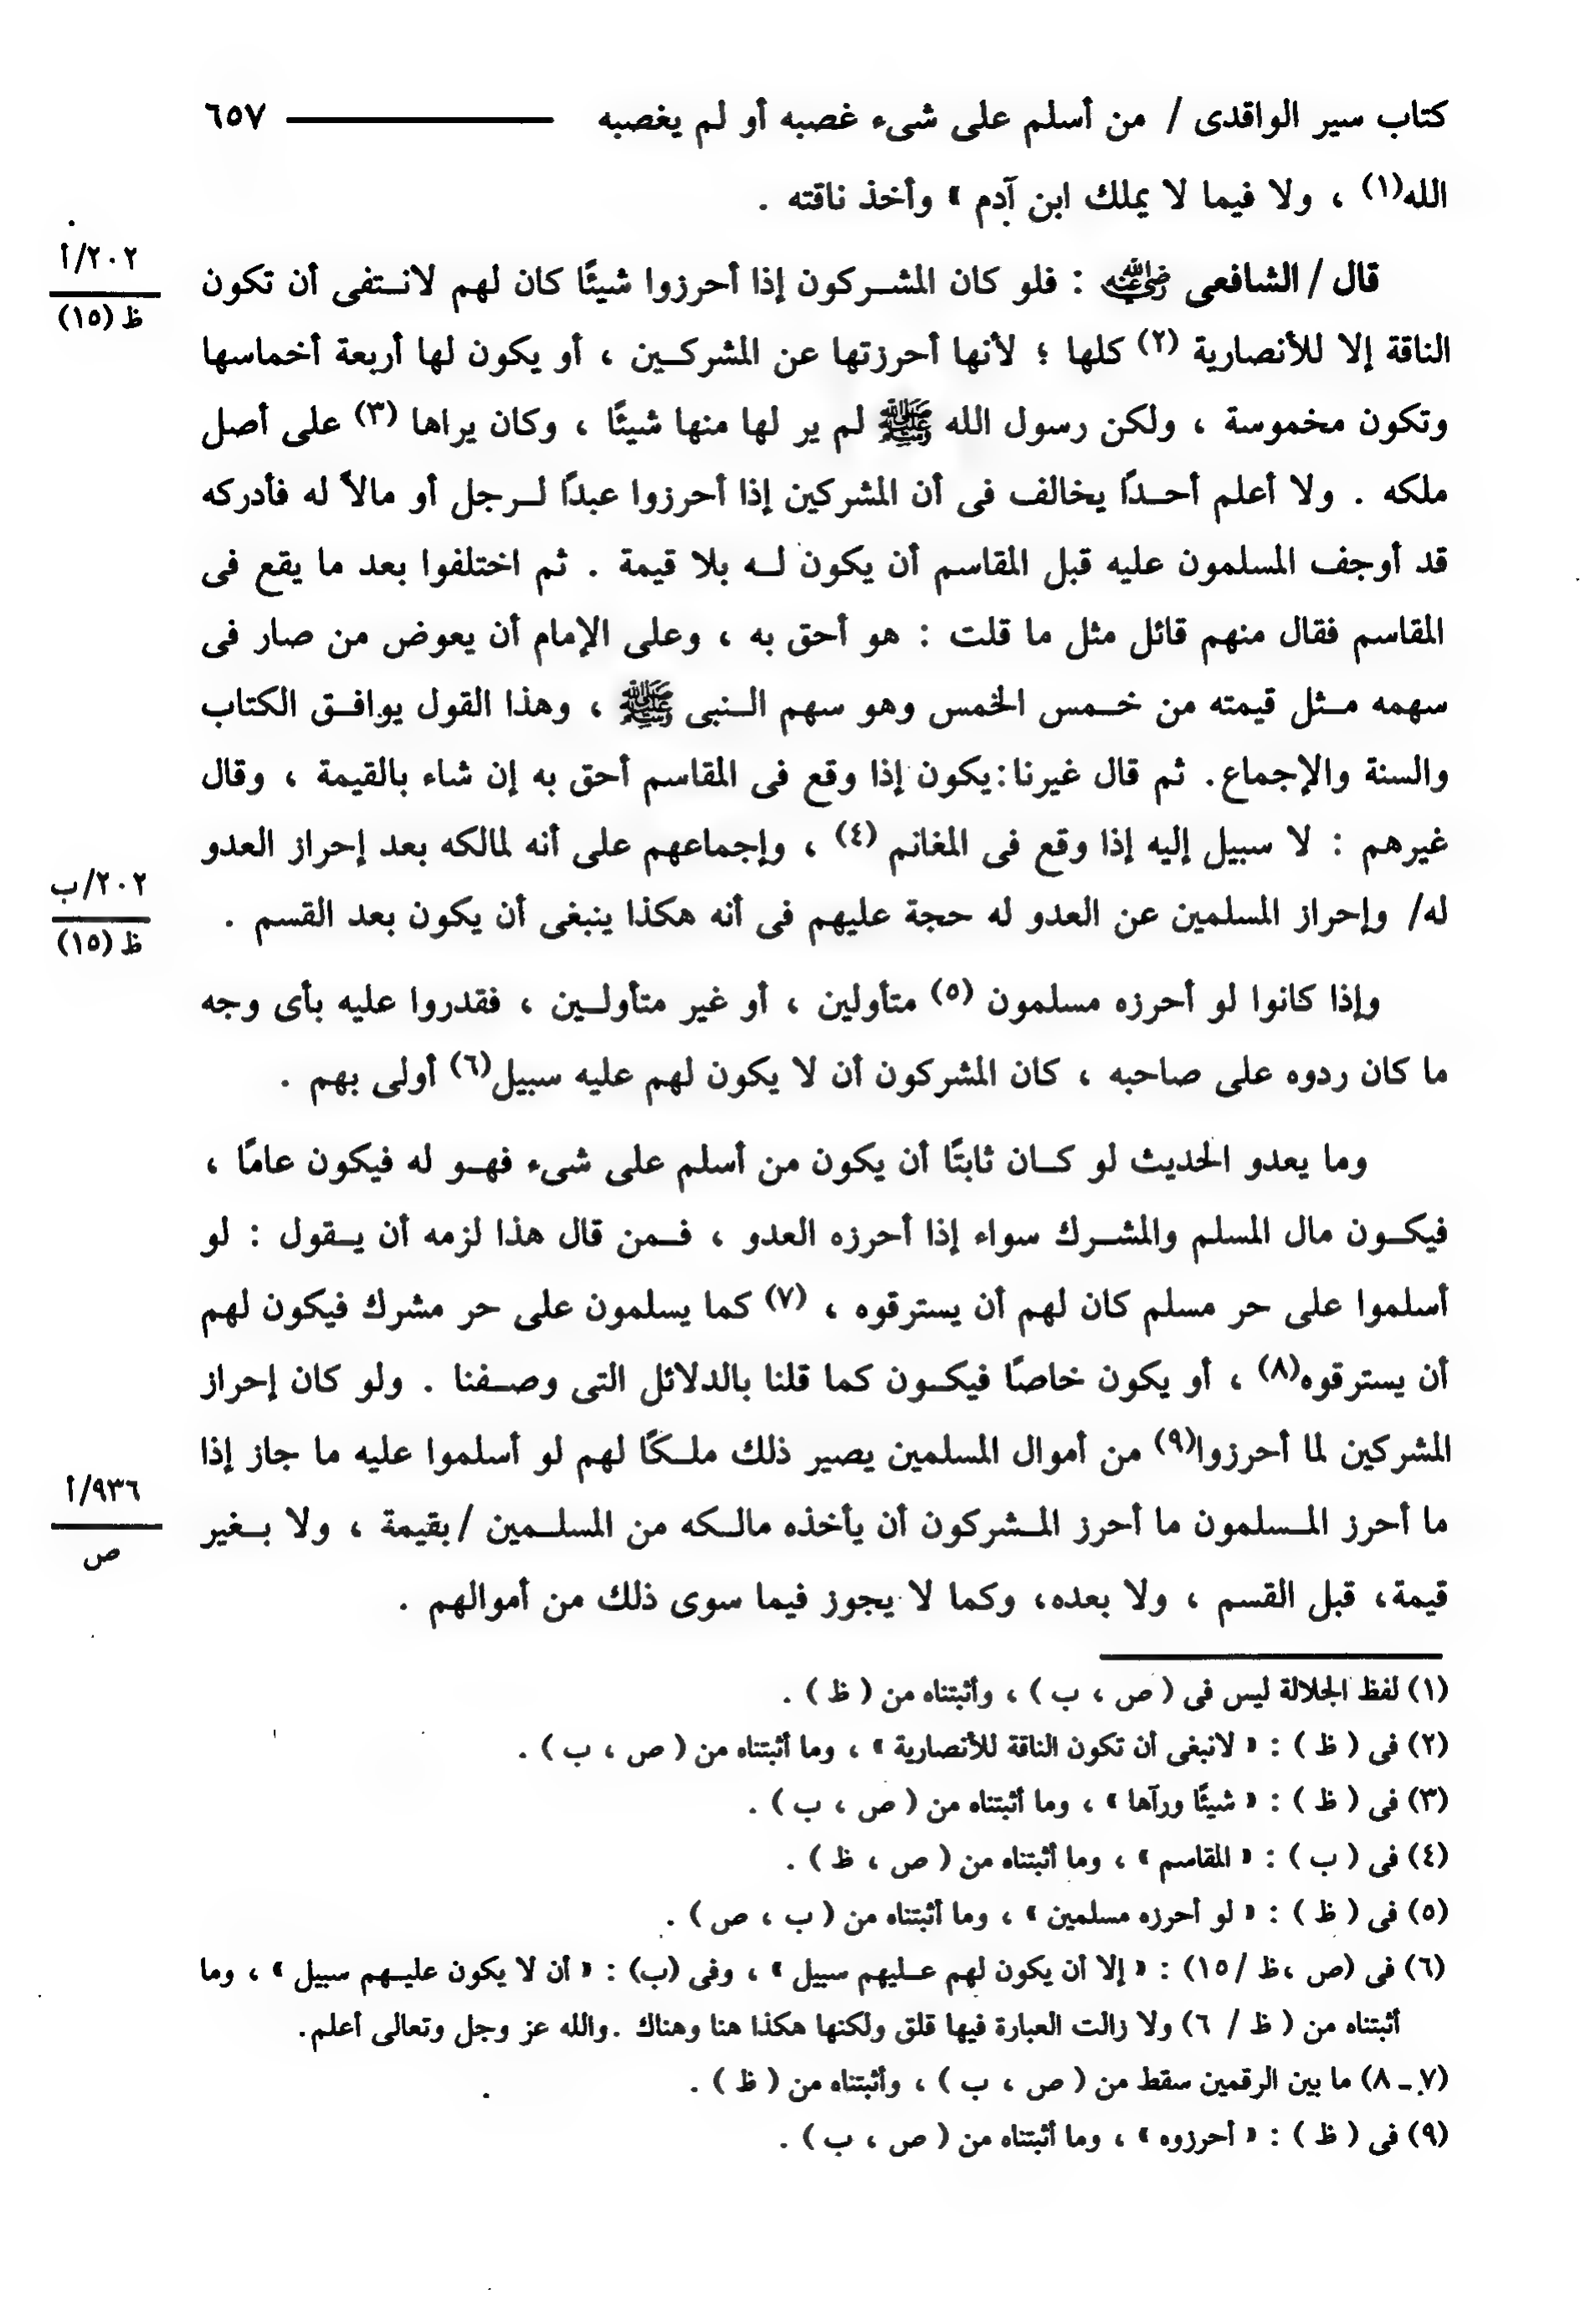 كتاب سير الواقدى / من أسلم على شىء غصبه أو لم يغصبه ــــــــــــــ ٦٥٧
الله(١) ، ولا فيما لا يملك ابن آدم » وأخذ ناقته .
٢٠٢/أ
ظ (١٥)
قال / الشافعى رضي الله عنه : فلو كان المشركون إذا أحرزوا شيئًا كان لهم لانتفى أن تكون
الناقة إلا للأنصارية (٢) كلها ؛ لأنها أحرزتها عن المشركين ، أو يكون لها أربعة أخماسها
وتكون مخموسة ، ولكن رسول الله ﷺ لم ير لها منها شيئًا ، وكان يراها (٣) على أصل
ملكه . ولا أعلم أحدًا يخالف فى أن المشركين إذا أحرزوا عبدًا لرجل أو مالاً له فأدركه
قد أوجف المسلمون عليه قبل المقاسم أن يكون له بلا قيمة . ثم اختلفوا بعد ما يقع فى
المقاسم فقال منهم قائل مثل ما قلت : هو أحق به ، وعلى الإمام أن يعوض من صار فى
سهمه مثل قيمته من خمس الخمس وهو سهم النبى ﷺ ، وهذا القول يوافق الكتاب
والسنة والإجماع. ثم قال غيرنا:يكون إذا وقع فى المقاسم أحق به إن شاء بالقيمة ، وقال
غيرهم : لا سبيل إليه إذا وقع فى المغانم (٤) ، وإجماعهم على أنه لمالكه بعد إحراز العدو
٢٠٢/ب
ظ (١٥)
له/ وإحراز المسلمين عن العدو له حجة عليهم فى أنه هكذا ينبغى أن يكون بعد القسم .
وإذا كانوا لو أحرزه مسلمون (٥) متأولين ، أو غير متأولين ، فقدروا عليه بأى وجه
ما كان ردوه على صاحبه ، كان المشركون أن لا يكون لهم عليه سبيل(٦) أولى بهم .
وما يعدو الحديث لو كان ثابتًا أن يكون من أسلم على شىء فهو له فيكون عامًا ،
فيكون مال المسلم والمشرك سواء إذا أحرزه العدو ، فمن قال هذا لزمه أن يقول : لو
أسلموا على حر مسلم كان لهم أن يسترقوه ، (٧) كما يسلمون على حر مشرك فيكون لهم
أن يسترقوه(٨) ، أو يكون خاصًا فيكون كما قلنا بالدلائل التى وصفنا . ولو كان إحراز
المشركين لما أحرزوا(٩) من أموال المسلمين يصير ذلك ملكًا لهم لو أسلموا عليه ما جاز إذا
٩٣٦/أ
ص
ما أحرز المسلمون ما أحرز المشركون أن يأخذه مالكه من المسلمين /بقيمة ، ولا بغير
قيمة، قبل القسم ، ولا بعده، وكما لا يجوز فيما سوى ذلك من أموالهم .
(١) لفظ الجلالة ليس فى ( ص ، ب ) ، وأثبتناه من ( ظ ) .
(٢) فى ( ظ ) : « لانبغى أن تكون الناقة للأنصارية » ، وما أثبتناه من ( ص ، ب ) .
(٣) فى ( ظ ) : « شيئًا ورآها » ، وما أثبتناه من ( ص ، ب ) .
(٤) فى ( ب ) : « المقاسم » ، وما أثبتناه من ( ص ، ظ ) .
(٥) فى ( ظ ) : « لو أحرزه مسلمين » ، وما أثبتناه من ( ب ، ص ) .
(٦) فى (ص ،ظ /١٥) : « إلا أن يكون لهم عليهم سبيل » ، وفى (ب) : « أن لا يكون عليهم سبيل » ، وما
أثبتناه من ( ظ / ٦) ولا زالت العبارة فيها قلق ولكنها هكذا هنا وهناك .والله عز وجل وتعالى أعلم.
(٧ـ ٨) ما بين الرقمين سقط من ( ص ، ب ) ، وأثبتناه من ( ظ ) .
(٩) فى ( ظ ) : « أحرزوه » ، وما أثبتناه من ( ص ، ب ) .